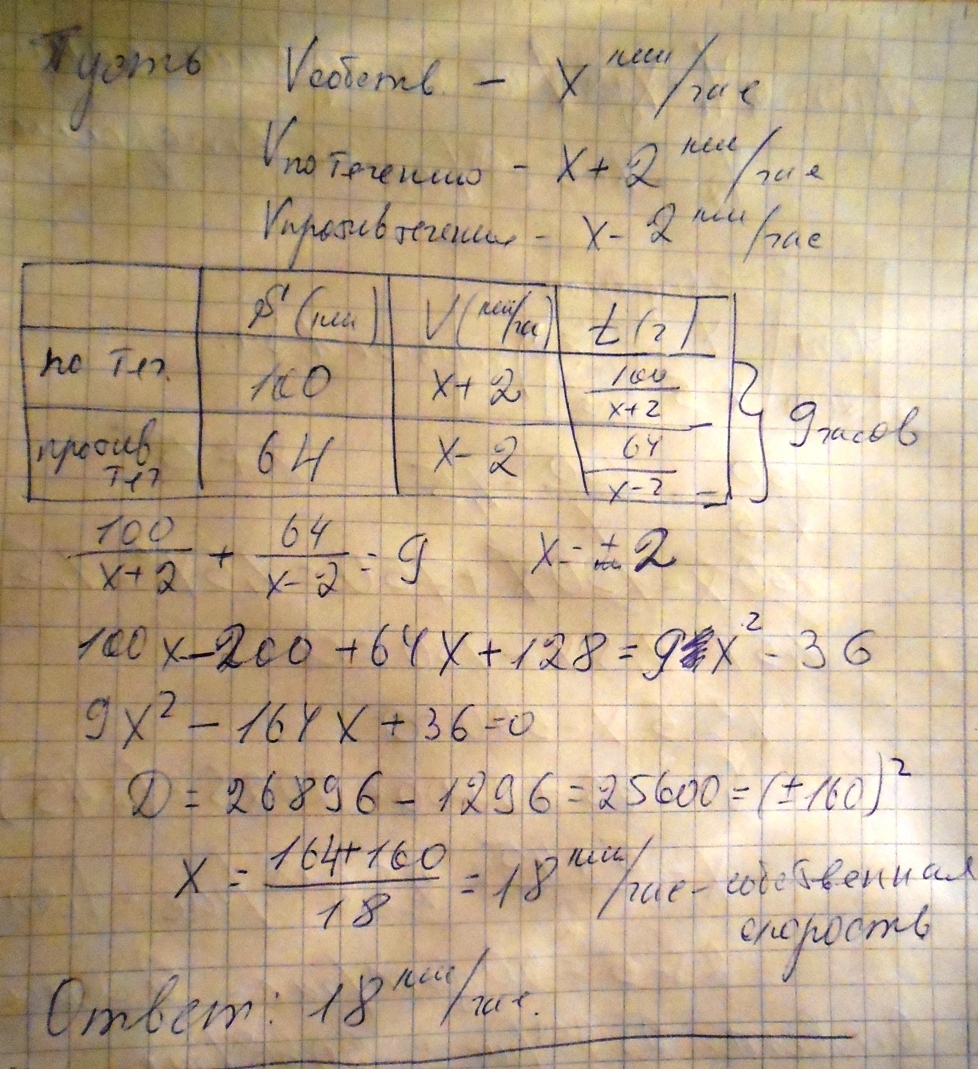 Пусть Vсобств. – x км/час
Vпо течению – x + 2 км/час
Vпротив течения – x - 2 км/час
S (км) V (км/ч) t (ч)
по теч. 100 x + 2 100/(x+2)
против теч 64 x - 2 64/(x-2)
9 часов
100/(x+2) + 64/(x-2) = 9 x = ± 2
100x - 200 + 64x + 128 = 9x² - 36
9x² - 164x + 36 = 0
D = 26896 - 1296 = 25600 = (±160)²
x = (164+160)/18 = 18 км/час - собственная
скорость
Ответ: 18 км/час.